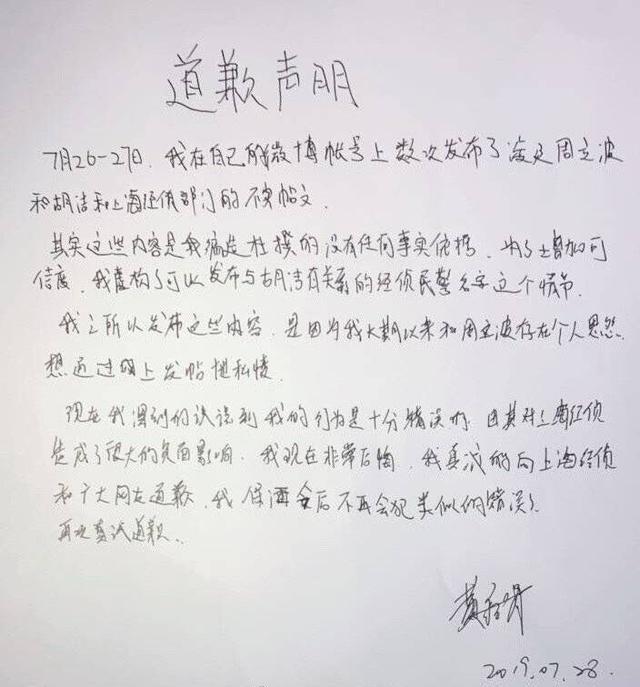 道歉声明
7月26-27日,我在自己的微博帐号上数次发布了凌廷周立波
和胡洁和上海经侦部门的不实帖文.
其实这些内容是我编造杜撰的没有任何事实依据,为了增加可
信度,我虚构了可以发布与胡洁有关系的经侦民警名字这个情节.
我之所以发布这些内容,是因为我长期以来和周立波存在个人恩怨.
想通过网上发帖泄私愤.
现在我深刻的认识到我的行为是十分错误的,因其对上海经侦
造成了很大的负面影响.我现在非常后悔,我真诚的向上海经侦
和广大网友道歉,我保证今后不再会犯类似的错误.
再次真诚道歉.
2019.07.28.